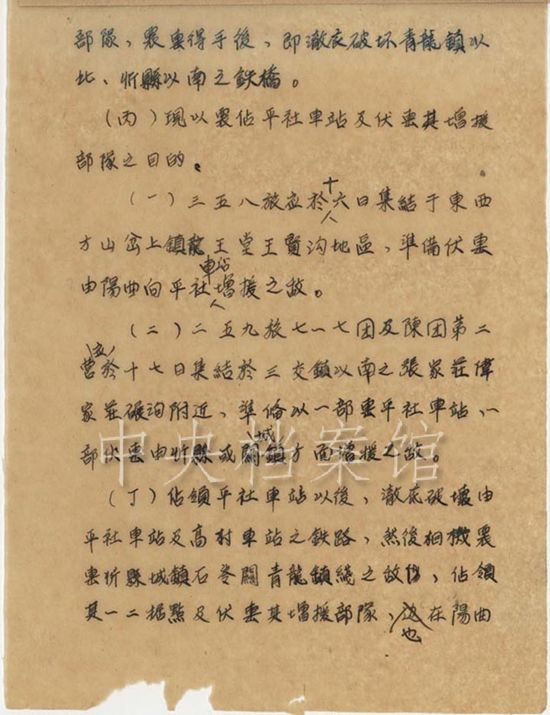 部隊，襲擊得手後，即澈底破坏青龍鎮以
北、忻縣以南之鉄橋。
（丙）現以襲佔平社車站及伏擊其增援
部隊之目的。
（一）三五八旅应於十六日集結于東西
方山岔上鎮龍王堂王賢沟地區，準備伏擊
由陽曲向平社車站增援之敌。
（二）二五九旅七一七团及陳团第二
营（五）於十七日集結於三交鎮以南之張家莊偉
家莊碾沟附近，準备以一部擊平社車站，一
部伏擊由忻縣或關城鎮方面增援之敌。
（丁）佔領平社車站以後，澈底破壞由
平社車站及高村車站之鉄路，然後相機襲
擊忻縣城鎮石岺關青龍鎮綫之敌，佔領
其一二据點及伏擊其增援部隊，也在陽曲
中央档案馆